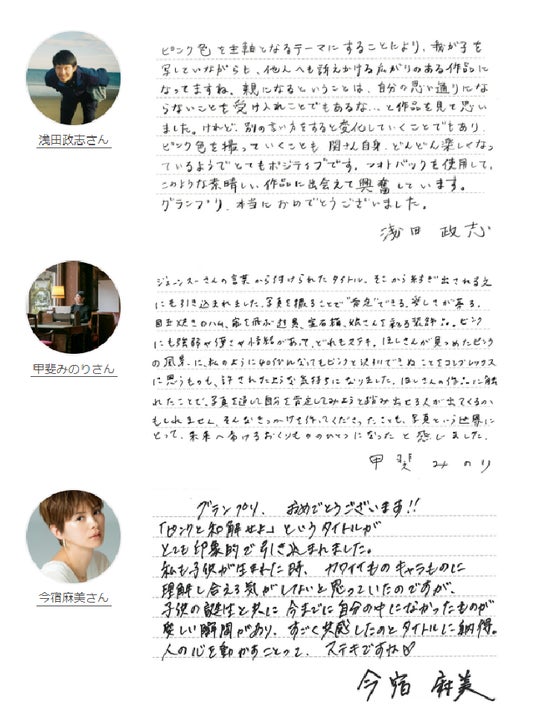 ピンク色を主軸となるテーマにすることにより、我が子を
写していながらも、他人へも訴えかける広がりのある作品に
なってますね。親になるということは、自分の思い通りにな
らないことも受け入れることでもあるな…と作品を見て思い
ました。けれど、別の言い方をすると変化していくことでもあり、
ピンク色を撮っていくことも 関さん自身、どんどん楽しくなっ
ているようでとてもポジティブです。フォトバックを使用して、
このような素晴しい作品に出会えて興奮しています。
グランプリ、本当におめでとうございました。
浅田 政志
浅田政志さん
ジェーンスーさんの言葉から付けられたタイトル。そこから紡ぎ出される
にも引き込まれました。写真を撮ることで"肯定"できる、愛しさが募る。
目玉焼きのハム、 遊具、宝石箱、娘さんを 装飾品。ピンク
にも強弱や 情緒があって、どれもステキ。ほしさんが見つめたピンク
の風景に、私のように40代になってもピンクと決別できぬことをコンプレックス
に思うものも、許されたような気持ちになりました。ほしさんの作品に触
れたことで、写真を通して自分を肯定してみようと踏み出せる人が出てくるかも
もしれません。そんなきっかけを作ってくださったことも、写真という世界に
とって、未来へ向けるおくりもののひとつになったと感じました。
甲斐 みのり
甲斐みのりさん
グランプリ、おめでとうございます!!
「ピンクと和解せよ」というタイトルが
とても印象的で引き込まれました。
私も子供が生まれた時、カワイイもの キャラものに
理解し合える気がしないと思っていたのですが、
子供の誕生と共に 今までに自分の中になかったものが
楽しい瞬間があり、すごく共感したのとタイトルに納得。
人の心を動かすことって、ステキですね♡
今宿 麻美
今宿麻美さん